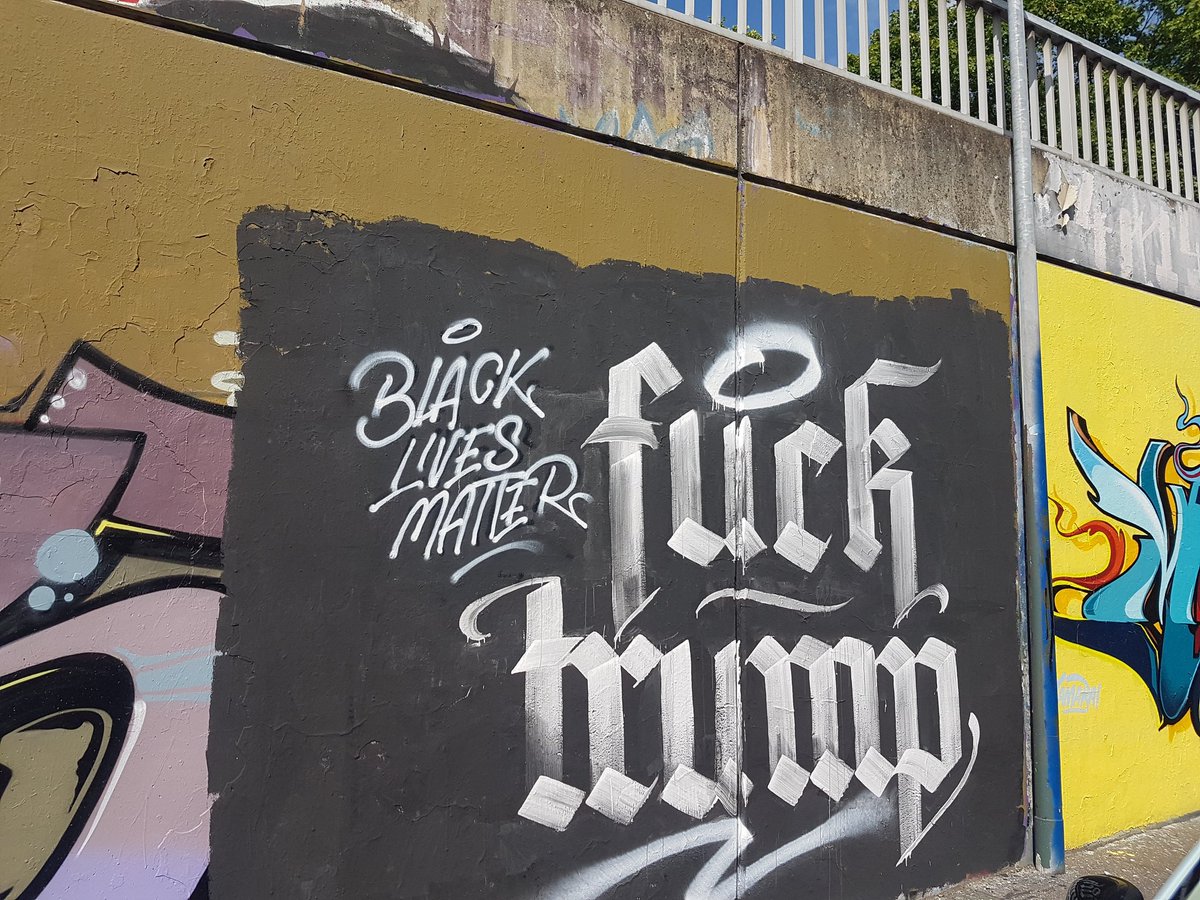 BLACK
LIVES
MATTER
fuck
trump